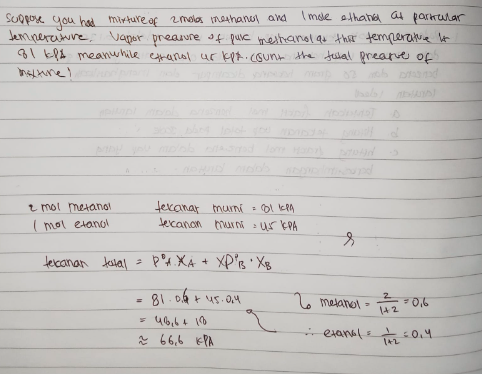 Suppose you had mixture of 2 moles methanol and 1 mole ethanol at particular
temperature. Vapor preasure of pure methanol at this temperature is
81 kPa meanwhile ethanol 45 kPa. count the total preasure of
mixture!
2 mol metanol tekanan murni = 81 kPA
1 mol etanol tekanan murni = 45 kPA
tekanan total = P°A . XA + XP°B . XB
= 81 . 0,6 + 45.0,4
= 48,6 + 18
≈ 66,6 kPA
metanol = 2/1+2 = 0,6
∴ etanol = 1/1+2 = 0,4